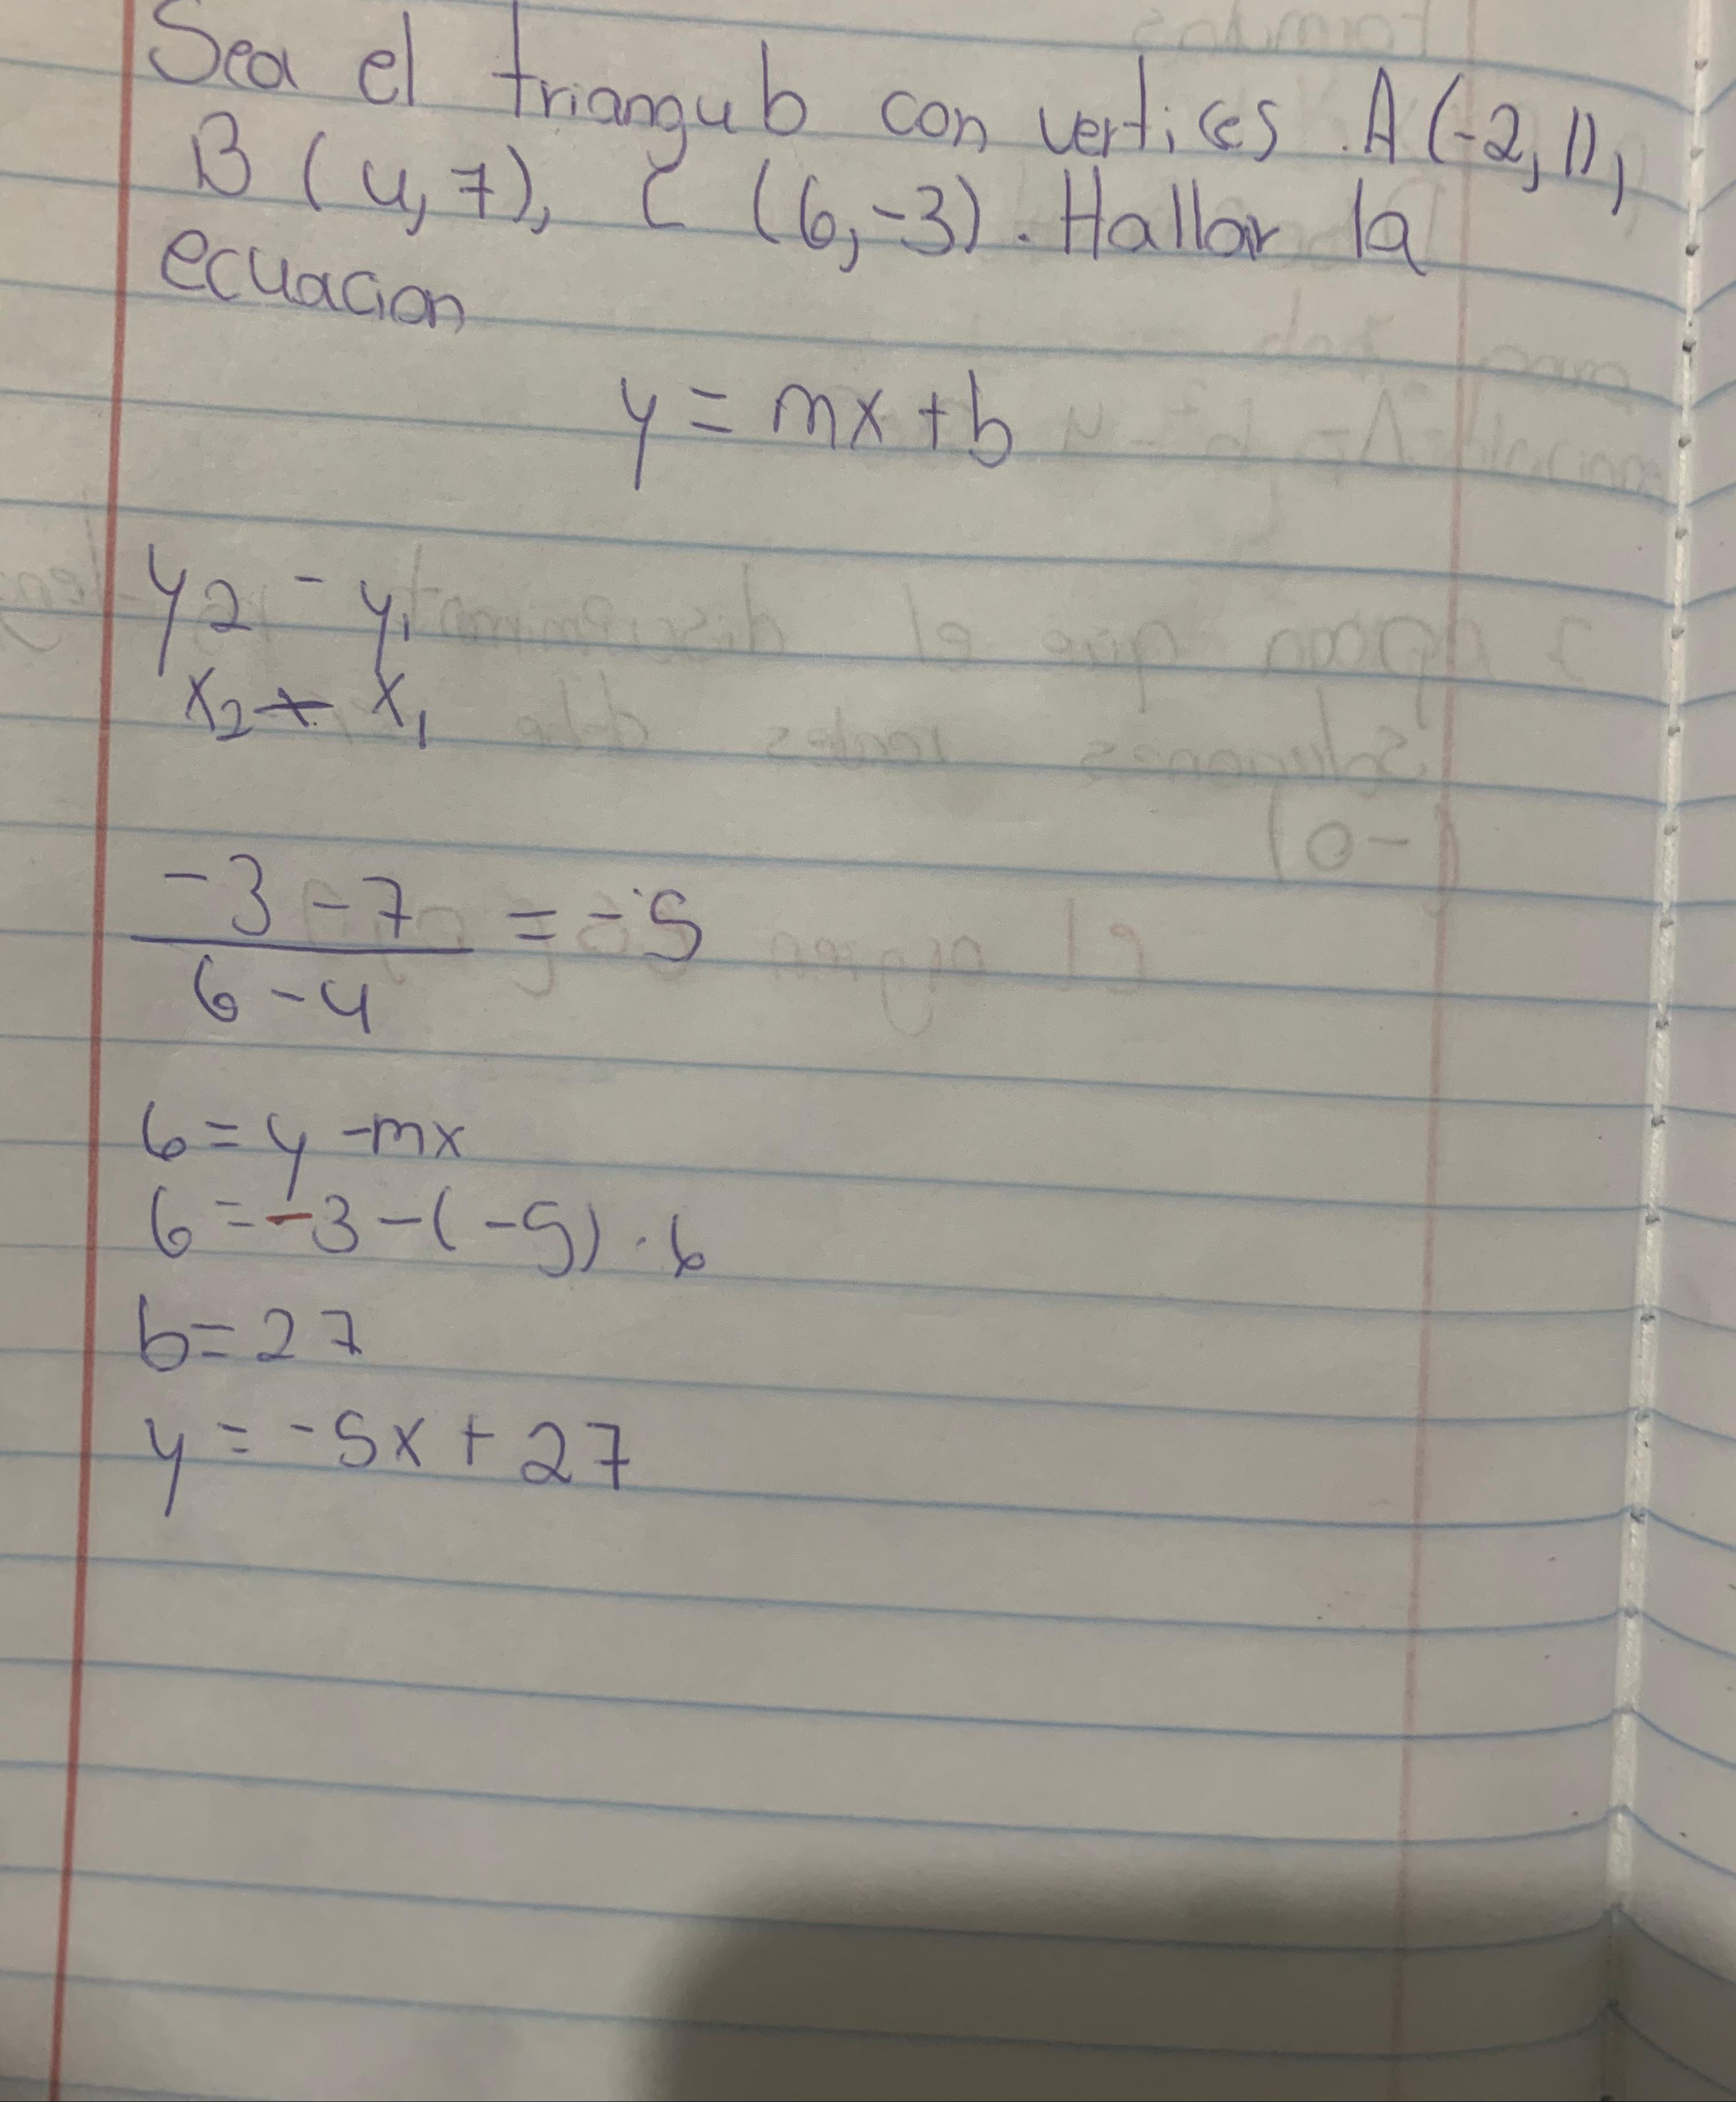 Sea el triangulo con vertices A(-2,1),
B (4,7), C (6,-3). Hallar la
ecuacion
y = mx + b
y2 - y1
x2 - x1
-3 - 7 = -5
6 - 4
b = y - mx
b = -3 - (-5) · 6
b = 27
y = -5x + 27